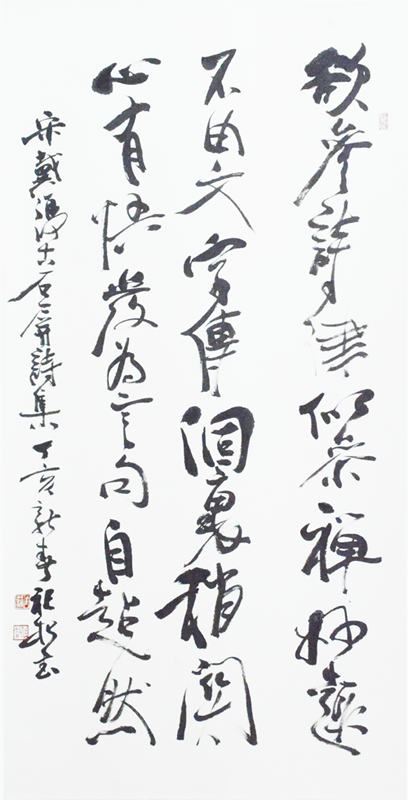 欲參詩律似參禪妙趣
不由文字傳個裏稍關
心有悟發為言句自超然
宋戴復古石屏詩集丁亥新春